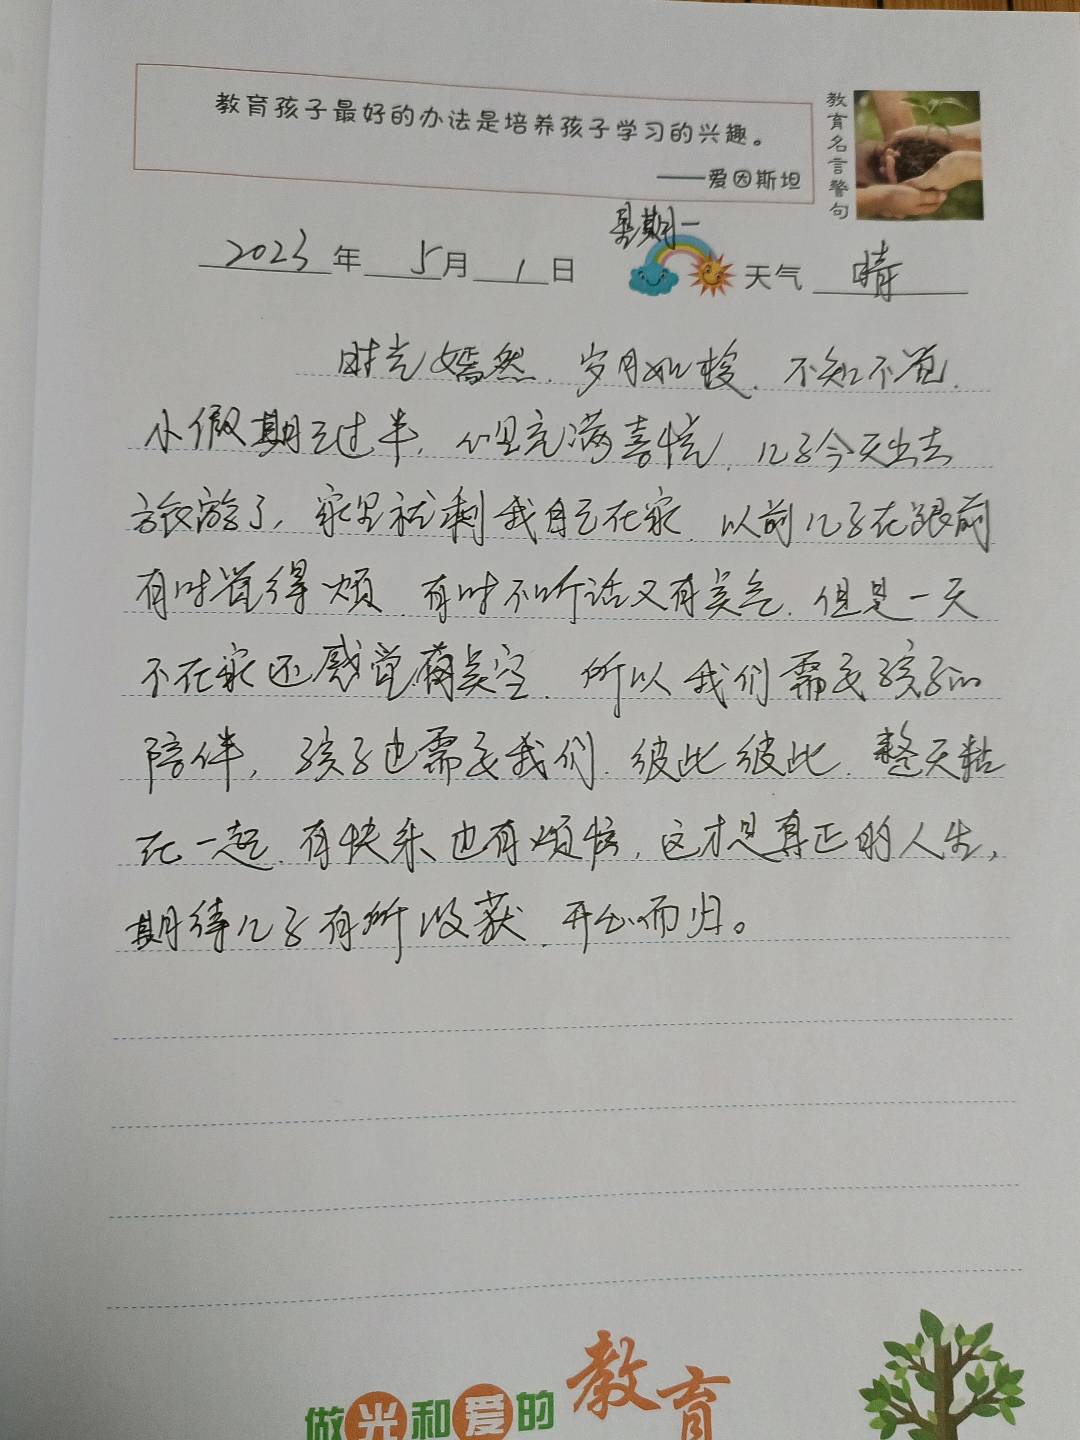 教育孩子最好的办法是培养孩子学习的兴趣。
——爱因斯坦
教育名言警句
星期一
2023年5月1日 天气 晴
时光嫣然、岁月如梭、不知不觉、
小假期已过半,心里充满喜悦,儿子今天出去
旅游了,家里就剩我自己在家、以前儿子在跟前
有时觉得烦、有时不听话又有些气、但是一天
不在家还感觉有些空、所以我们需要孩子的
陪伴,孩子也需要我们、彼此彼此、整天粘
在一起、有快乐也有烦恼,这才是真正的人生,
期待儿子有所收获、开心而归。
做光和爱的教育